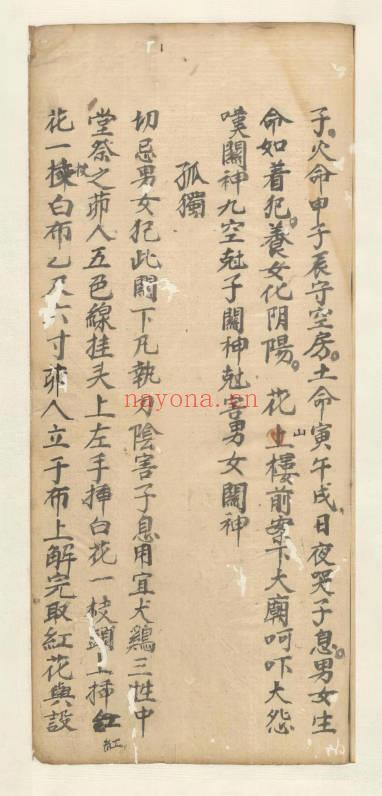 子。火命申子辰守空房。土命寅午戌日夜哭子息。男女生
命如着犯。養女化阴陽。花山樓前案下大廟呵吓大怨
嘆關神九空尅子關神尅害男女關神
孤獨
切忌男女犯此關下凡執刀陰害子息用宜犬鷄三牲中
堂祭之茆人五色線挂头上左手揷白花一枝頭上揷紅
花一枝白布乙尺六寸茆人立于布上解完取紅花與設
nayona.cn